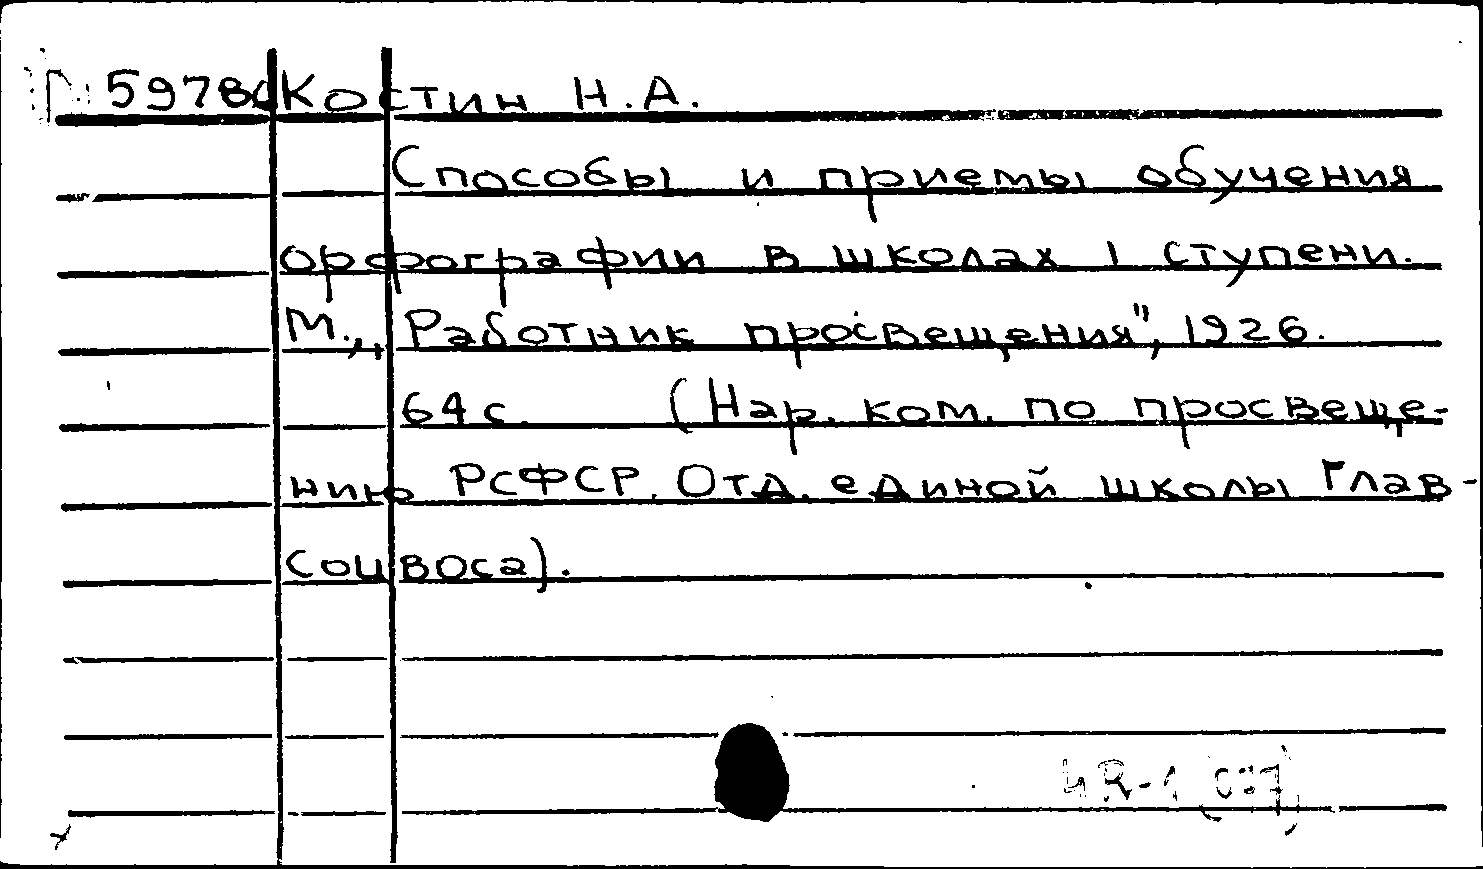 Костин Н.А.
Способы и приемы обучения
орфографии в школах I ступени.
М., „Работник просвещения", 1926.
64 с. (Нар. ком. по просвеще-
нию РСФСР. Отд. единой школы Глав-
соцвоса).